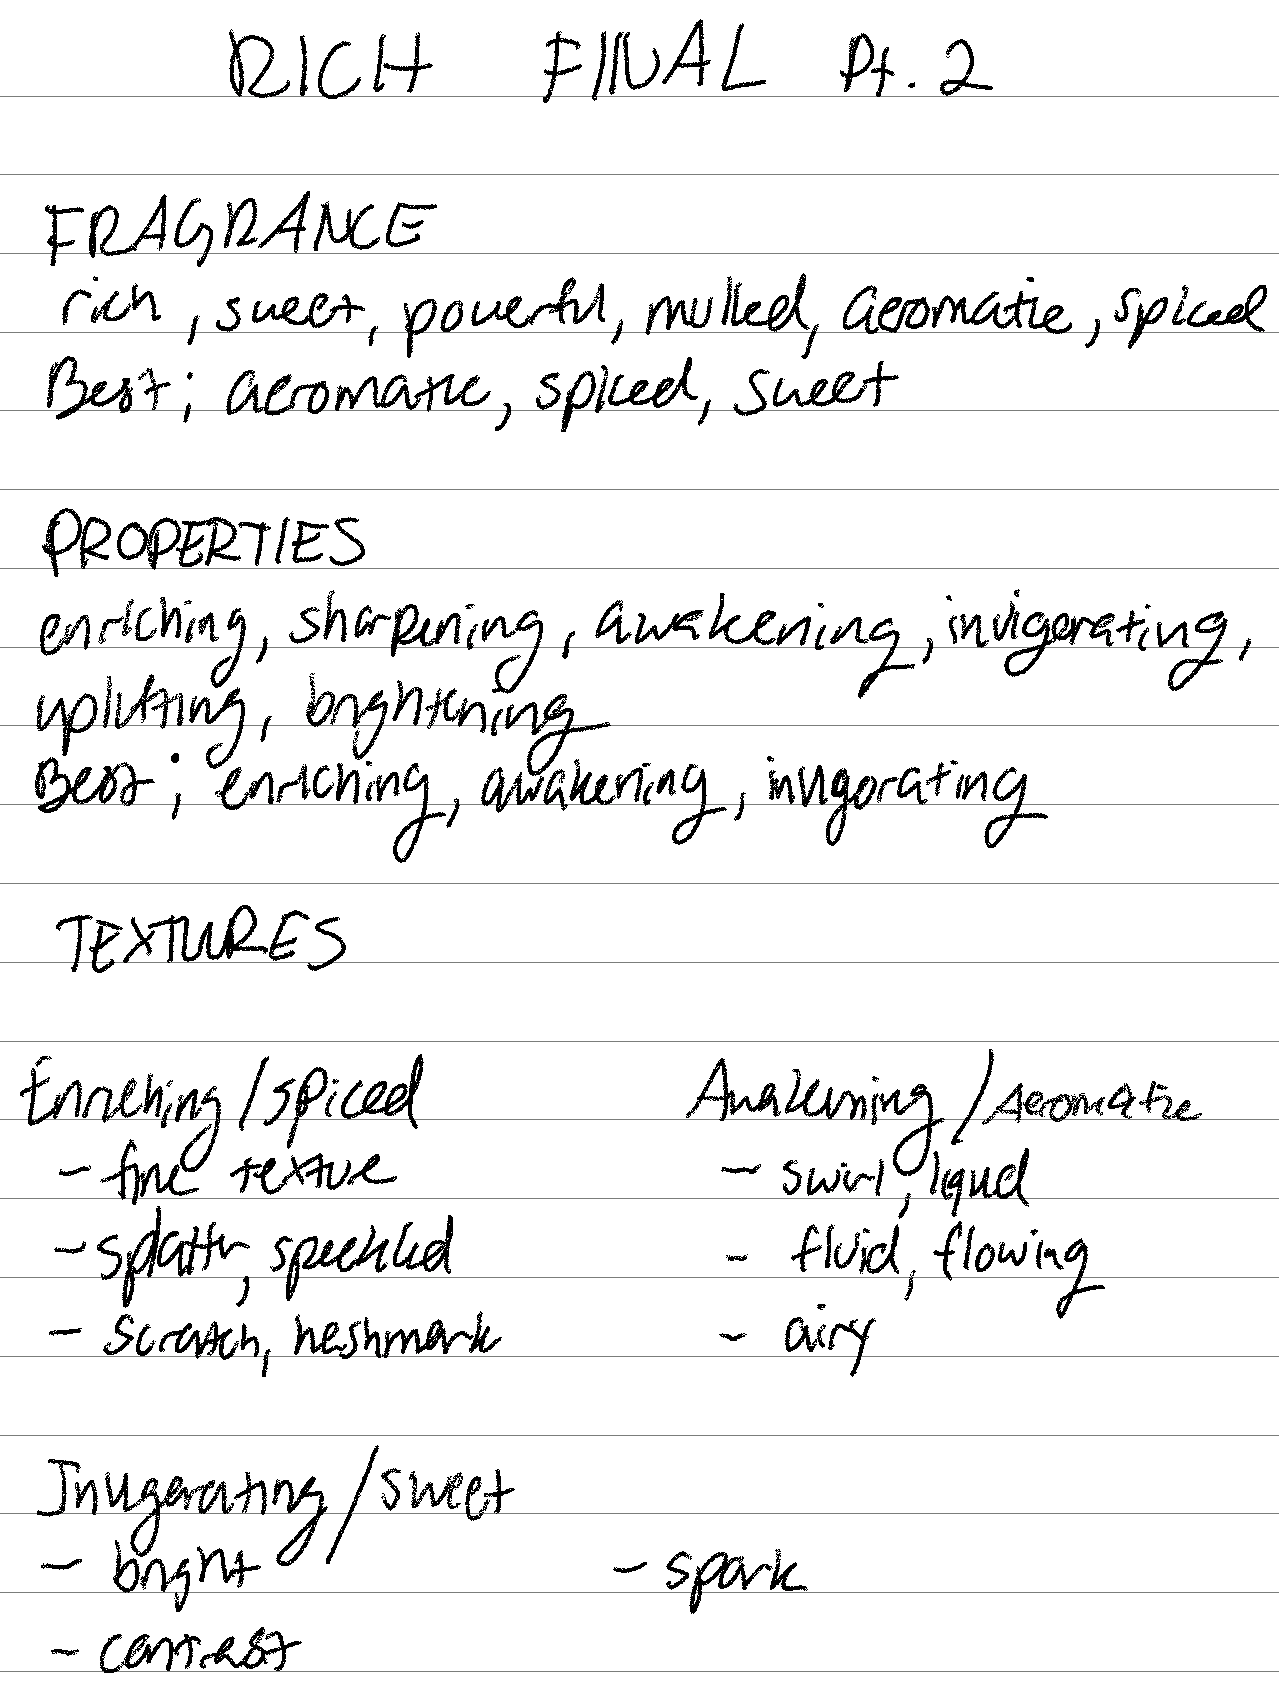 RICH FINAL Pt. 2
FRAGRANCE
rich, sweet, powerful, mulled, aeromatic, spiced
Best; aeromatic, spiced, sweet
PROPERTIES
enriching, sharpening, awakening, invigerating,
uplifting, brightening
Best; enriching, awakening, invigorating
TEXTURES
Enriching/spiced
- fine texture
- splatter, speckled
- scratch, heshmark
Awakening/Aeromatic
- swirl, liquid
- fluid, flowing
- airy
Invigerating/sweet
- bright
- contrast
- spark